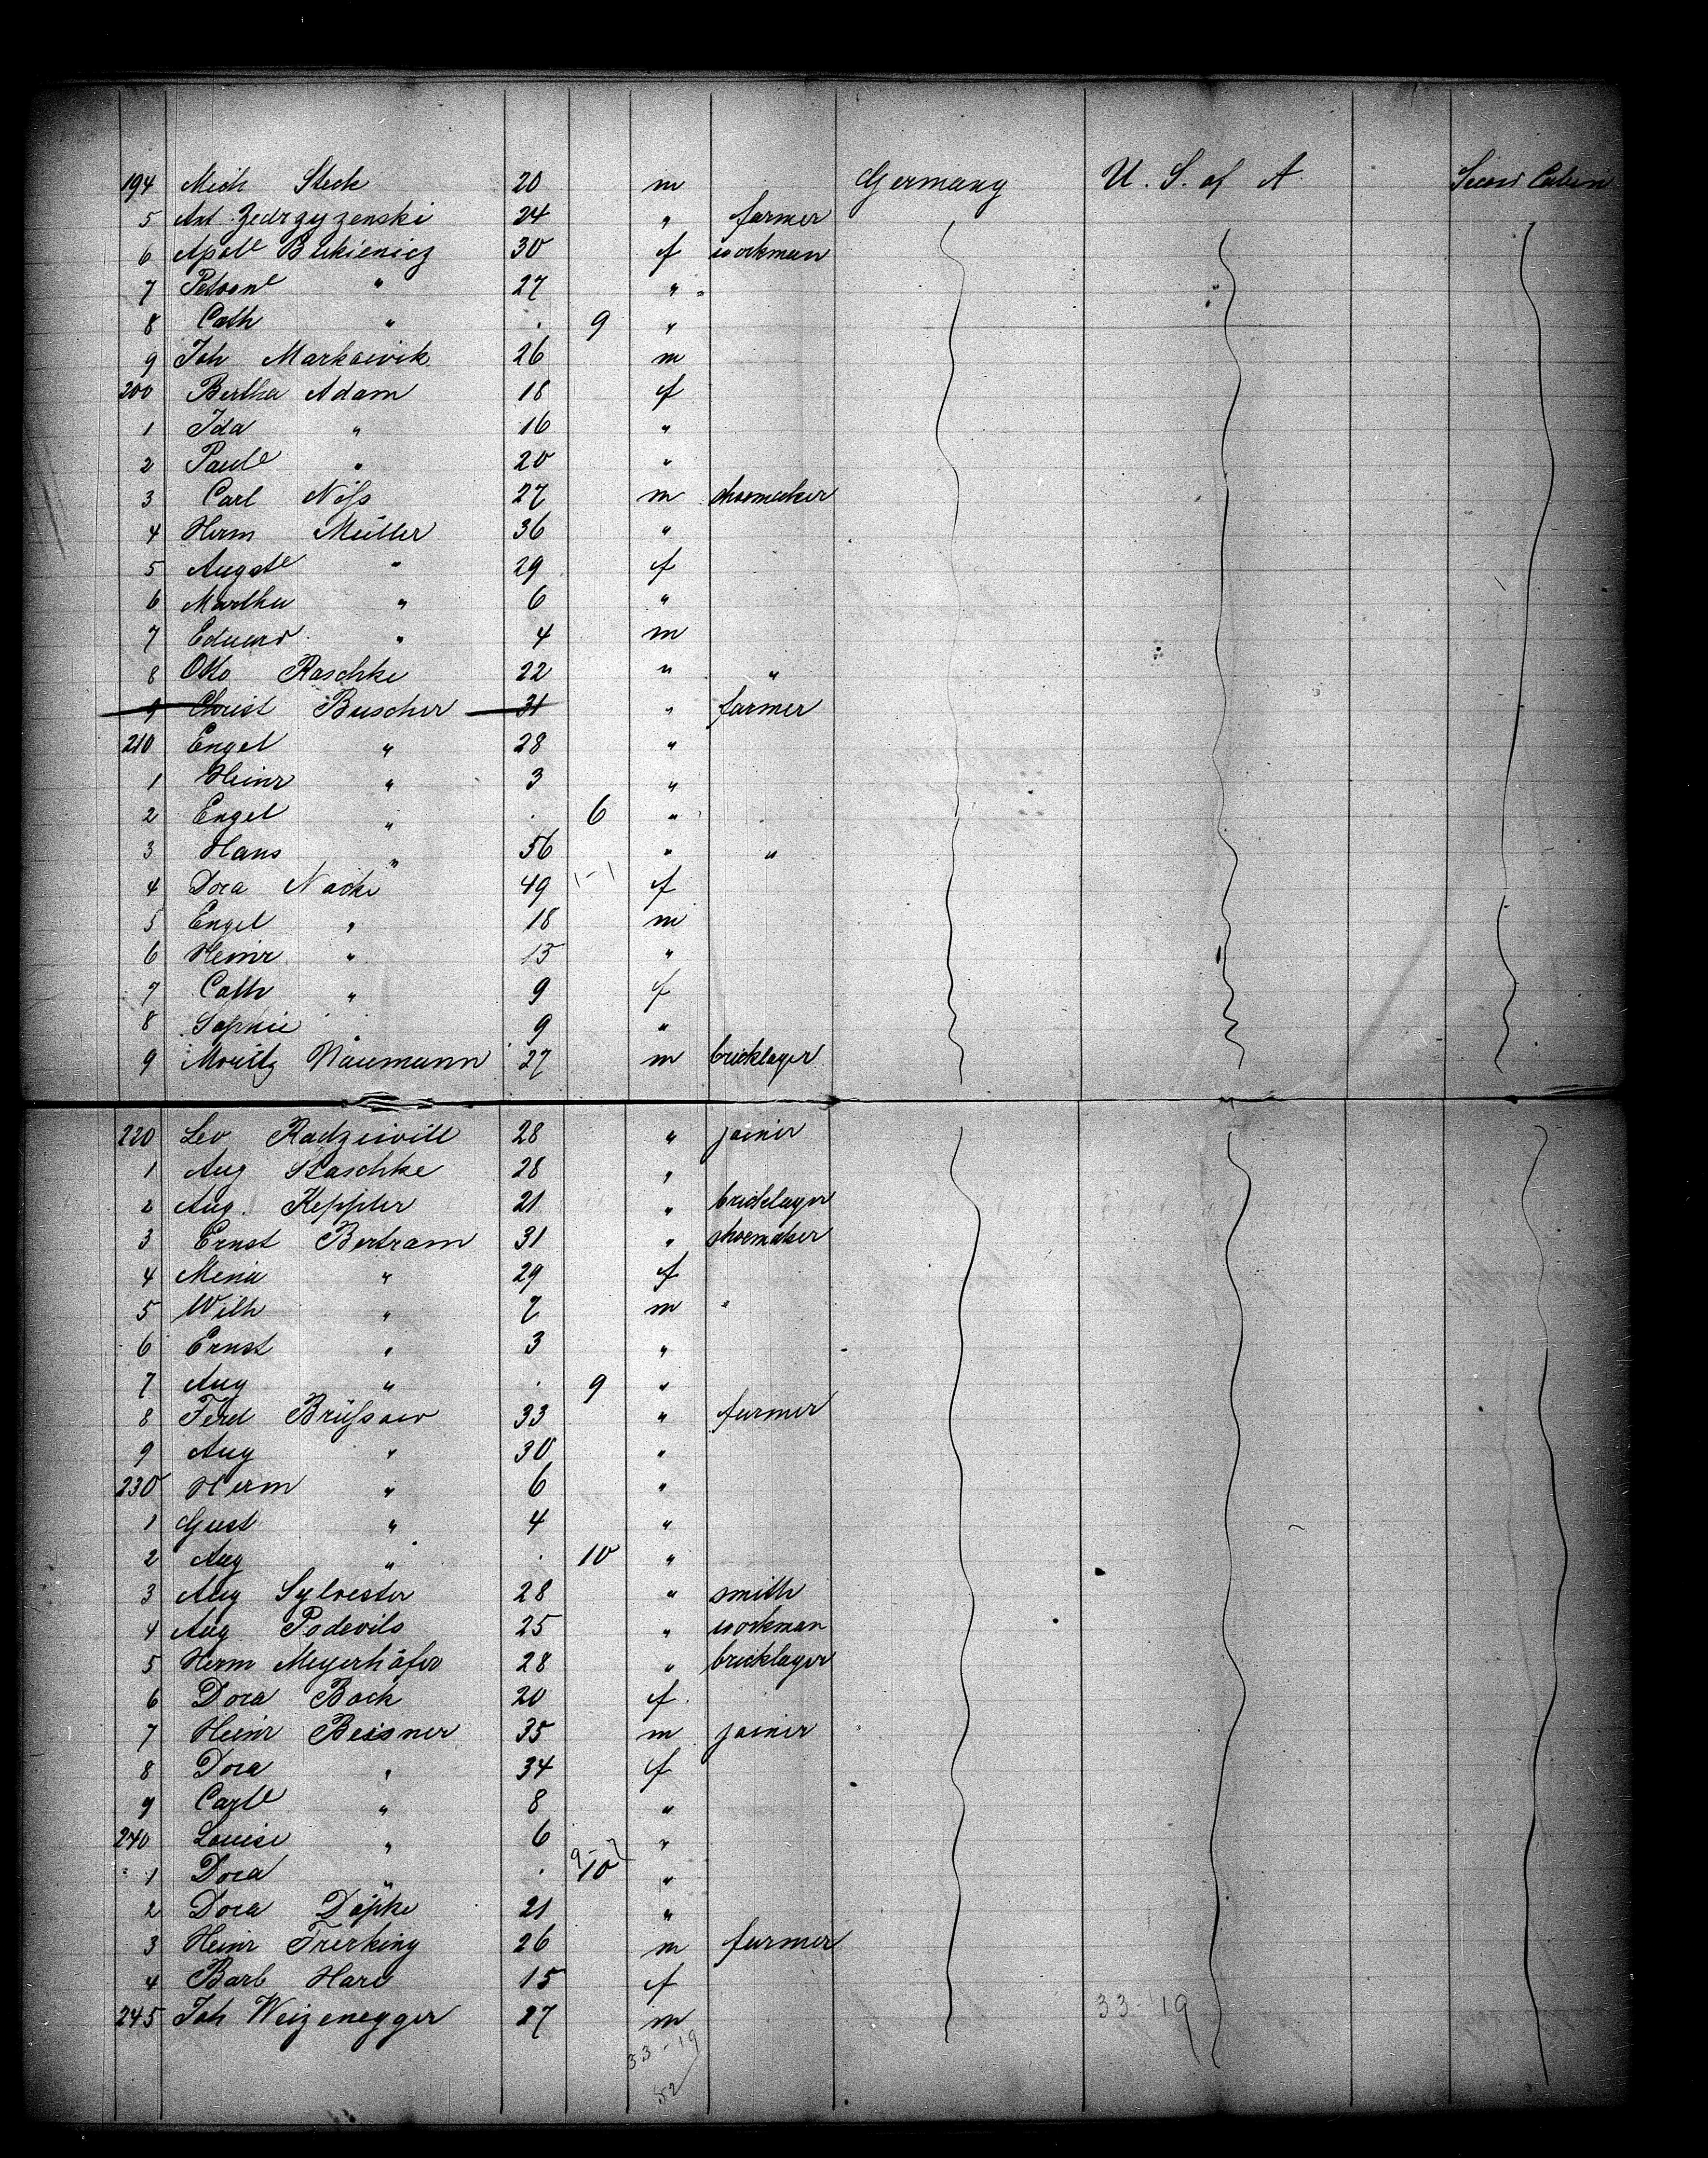 194 Mich Steck 20 m Germany U. S. of A. Cabin
5 Ant. Zedrzyzenski 24 " farmer
6 Apol Bukienicz 30 f workman
7 Petron " 27 "
8 Cath " . 9 "
9 Joh Markowik 26 m
200 Bertha Adam 18 f
1 Ida " 16 "
2 Paule " 20 "
3 Carl 27 m shoemaker
4 Herm Müller 36 "
5 Auguste " 29 f
6 Martha " 6 "
7 Eduard " 4 m
8 Otto Raschke 22 " "
9 Christ Buscher 31 " farmer
210 Engel " 28 "
1 Heinr " 3 "
2 Engel " . 6 "
3 Hans " 56 " "
4 Dora Nacke 49 1-1 f
5 Engel " 18 m
6 Heinr " 15 "
7 Cath " 9 f
8 Sophie . 9 "
9 Moritz Naumann 27 m bricklayer
220 Leo Radziwill 28 " joiner
1 Aug Raschke 28 "
2 Aug. Keppler 21 " bricklayer
3 Ernst Bertram 31 " shoemaker
4 Menie " 29 f
5 Wilh " 7 m "
6 Ernst " 3 "
7 Aug " . 9 "
8 Ferd Brüssow 33 " farmer
9 Aug " 30 "
230 Herm " 6 "
1 Gust " 4 "
2 Aug " . 10 "
3 Aug Sylvester 28 " smith
4 Aug Podevils 25 " workman
5 Herm Meyerhöfer 28 " bricklayer
6 Dora Bock 20 f
7 Heinr Beisner 35 m joiner
8 Dora " 34 f
9 Carle " 8 "
240 Louise " 6 "
1 Dora " . 10 "
2 Dora Döpke 21 "
3 Heinr Frerking 26 m farmer
4 Barb 15 f
245 Joh Weizenegger 27 m
33-19
33-19
52